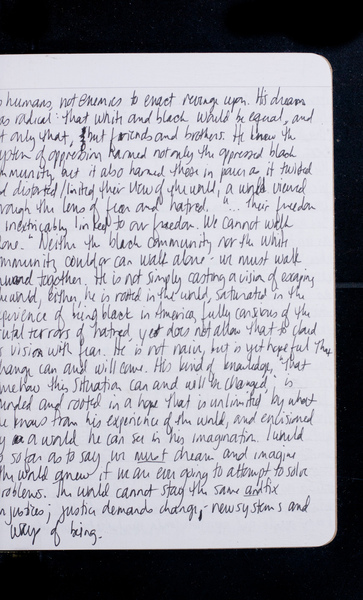 s humans, not enemies to enact revenge upon. His dream
as radical: that white and black would be equal, and
t only that, but friends and brothers. He knew the
ystem of oppression harmed not only the oppressed black
mmunity, but it also harmed those in power as it twisted
d distorted/limited their view of the world, a world viewed
rough the lens of fear and hatred. "... their freedom
inextricably linked to our freedom. We cannot walk
lone." Neither the black community nor the white
mmunity could or can walk alone - we must walk
together. He is not simply casting a vision of escaping
world, either, he is rooted in the world, saturated in the
perience of being black in America, fully conscious of the
utal terrors of hatred, yet does not allow that to cloud
s vision with fear. He is not naive, but is yet hopeful that
change can and will come. His kind of knowledge, "that
mehow this situation can and will be changed," is
unded and rooted in a hope that is unlimited by what
e knows from his experience of the world, and envisioned
y a world he can see in his imagination. I would
o so far as to say we must dream and imagine
the world anew if we are ever going to attempt to solve
roblems. The world cannot stay the same and fix
njustices; justice demands change, - new systems and
ways of being.